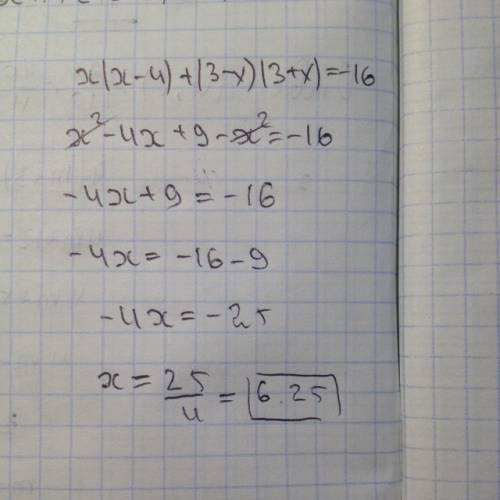 x(x-4)+(3-x)(3+x)=-16
x²-4x+9-x²=-16
-4x+9=-16
-4x=-16-9
-4x=-25
x=25/4=6.25